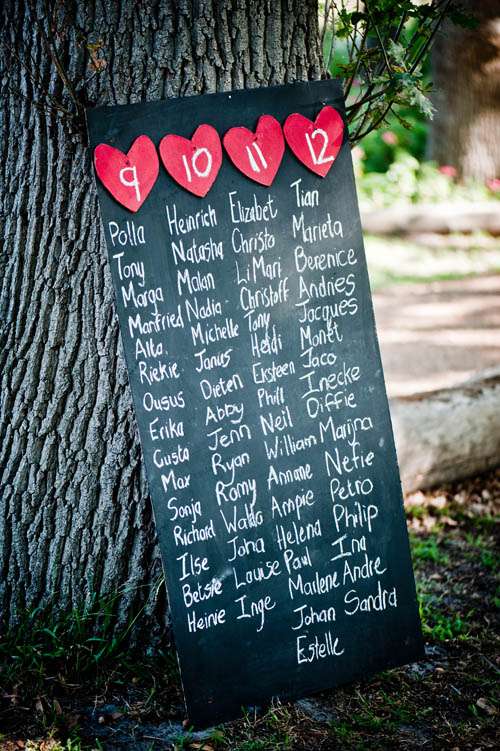 9
Polla
Tony
Marga
Manfried
Alta
Riekie
Ousus
Erika
Gusta
Max
Sonja
Richard
Ilse
Betsie
Heinie
10
Heinrich
Natasha
Malan
Nadia
Michelle
Janus
Dieten
Abby
Jenn
Ryan
Romy
Waldo
Joha
Louise
Inge
11
Elizabet
Christo
LiMari
Christoff
Tony
Heidi
Eksteen
Phill
Neil
William
Annane
Ampie
Helena
Paul
Marlene
Johan
Estelle
12
Tian
Marieta
Berenice
Andries
Jacques
Monet
Jaco
Inecke
Diffie
Marijna
Nefie
Petro
Philip
Ina
Andre
Sandra